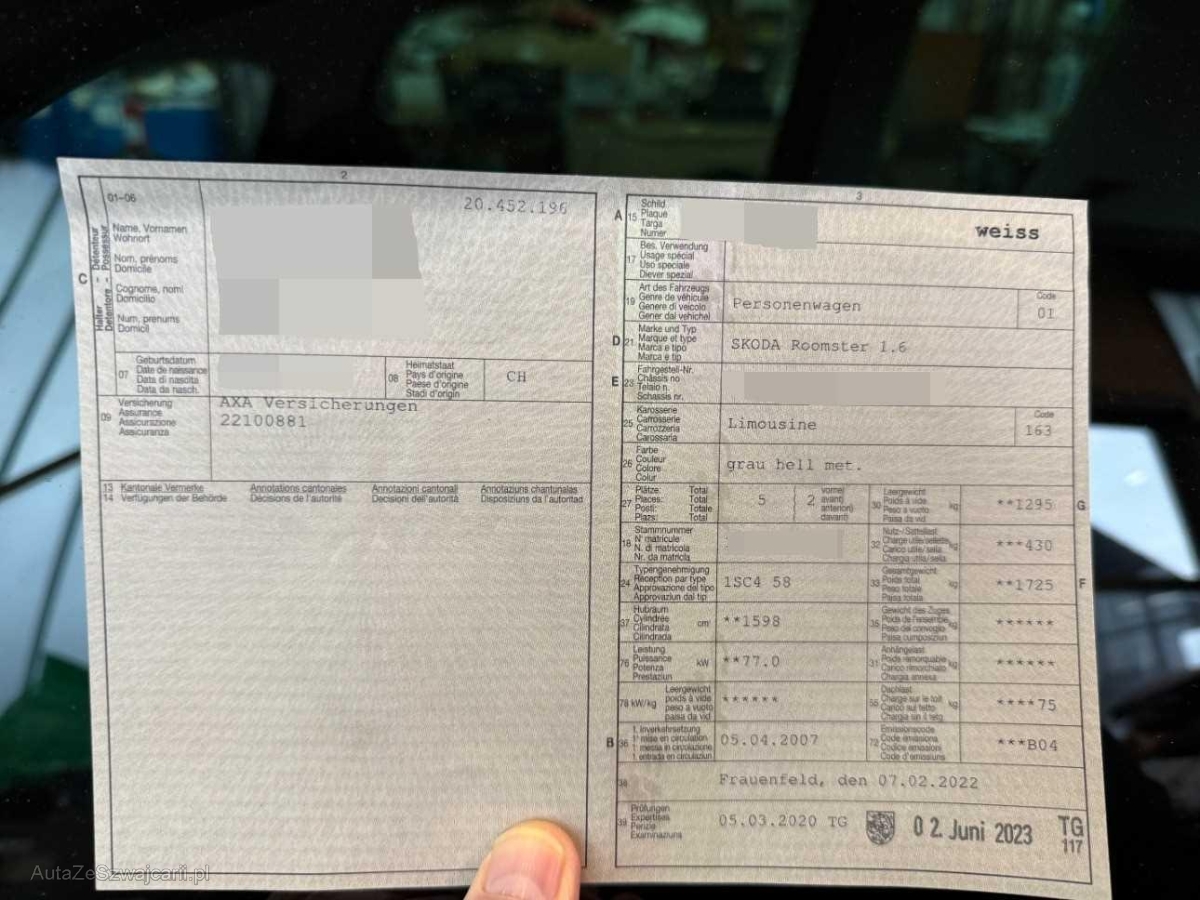 2
01-06
20.452.196
C
Halter - Détenteur
Detentore - Possessur
Name, Vornamen
Wohnort
Nom, prénoms
Domicile
Cognome, nomi
Domicilio
Num, prenums
Domicil
07
Geburtsdatum
Date de naissance
Data di nascita
Data da nasch.
08
Heimatstaat
Pays d'origine
Paese d'origine
Stadi d'origin
CH
09
Versicherung
Assurance
Assicurazione
Assicuranza
AXA Versicherungen
22100881
13 Kantonale Vermerke Annotations cantonales Annotazioni cantonali Annotaziuns chantunalas
14 Verfügungen der Behörde Décisions de l'autorité Decisioni dell'autorità Dispoziziuns da l'autoritad
3
A 15
Schild
Plaque
Targa
Numer
weiss
17
Bes. Verwendung
Usage spécial
Uso speciale
Diever spezial
19
Art des Fahrzeugs
Genre de véhicule
Genere di veicolo
Gener dal vehichel
Personenwagen
Code
01
D 21
Marke und Typ
Marque et type
Marca e tipo
Marca e tip
SKODA Roomster 1.6
E 23
Fahrgestell-Nr.
Châssis no
Telaio n.
Schassis nr.
25
Karosserie
Carrosserie
Carrozzeria
Carossaria
Limousine
Code
163
26
Farbe
Couleur
Colore
Colur
grau hell met.
27
Plätze: Total
Places: Total
Posti: Totale
Plazs: Total
5
2
vorne)
avant)
anteriori)
davant)
30
Leergewicht
Poids à vide
Peso a vuoto
Paisa da vid
kg
**1295
G
18
Stammnummer
N° matricule
N. di matricola
Nr. da matricla
32
Nutz-/Sattellast
Charge utile/sellette
Carico utile/sella
Chargia utila/sella
kg
***430
24
Typengenehmigung
Réception par type
Approvazione del tipo
Approvaziun dal tip
1SC4 58
33
Gesamtgewicht
Poids total
Peso totale
Paisa totala
kg
**1725
F
37
Hubraum
Cylindrée
Cilindrata
Cilindrada
cm³
**1598
35
Gewicht des Zuges
Poids de l'ensemble
Peso del convoglio
Paisa cumposiziun
kg
******
76
Leistung
Puissance
Potenza
Prestaziun
kW
**77.0
31
Anhängelast
Poids remorquable
Carico rimorchiato
Chargia annexa
kg
******
78 kW/kg
Leergewicht
poids à vide
peso a vuoto
paisa da vid
******
55
Dachlast
Charge sur le toit
Carico sul tetto
Chargia sin il tetg
kg
****75
B 36
1. Inverkehrsetzung
1re mise en circulation
1a messa in circolazione
1. entrada en circulaziun
05.04.2007
72
Emissionscode
Code émissions
Codice emissioni
Code d'emissiuns
***B04
38
Frauenfeld, den 07.02.2022
39
Prüfungen
Expertises
Perizie
Examinaziuns
05.03.2020 TG
02. Juni 2023
TG
117
AutaZeSzwajcarii.pl